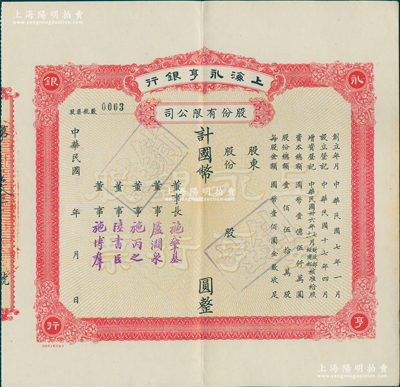 上海陽明拍賣
www.sh-yangming.com
上海永亨銀行
股份有限公司
永
銀
行
亨
0003
創立年月 中華民國七年一月
設立登記 中華民國十七年四月
增資登記 中華民國卅六年
資本總額 國幣壹億伍仟萬圓
股份總額 壹佰伍拾萬股
每股金額 國幣壹佰圓全數收足
股東
股份 股
計國幣 圓整
董事長 施肇基
董事 盧澗泉
董事 施丙之
董事 陸書臣
董事 施博羣
中華民國 年 月 日
號